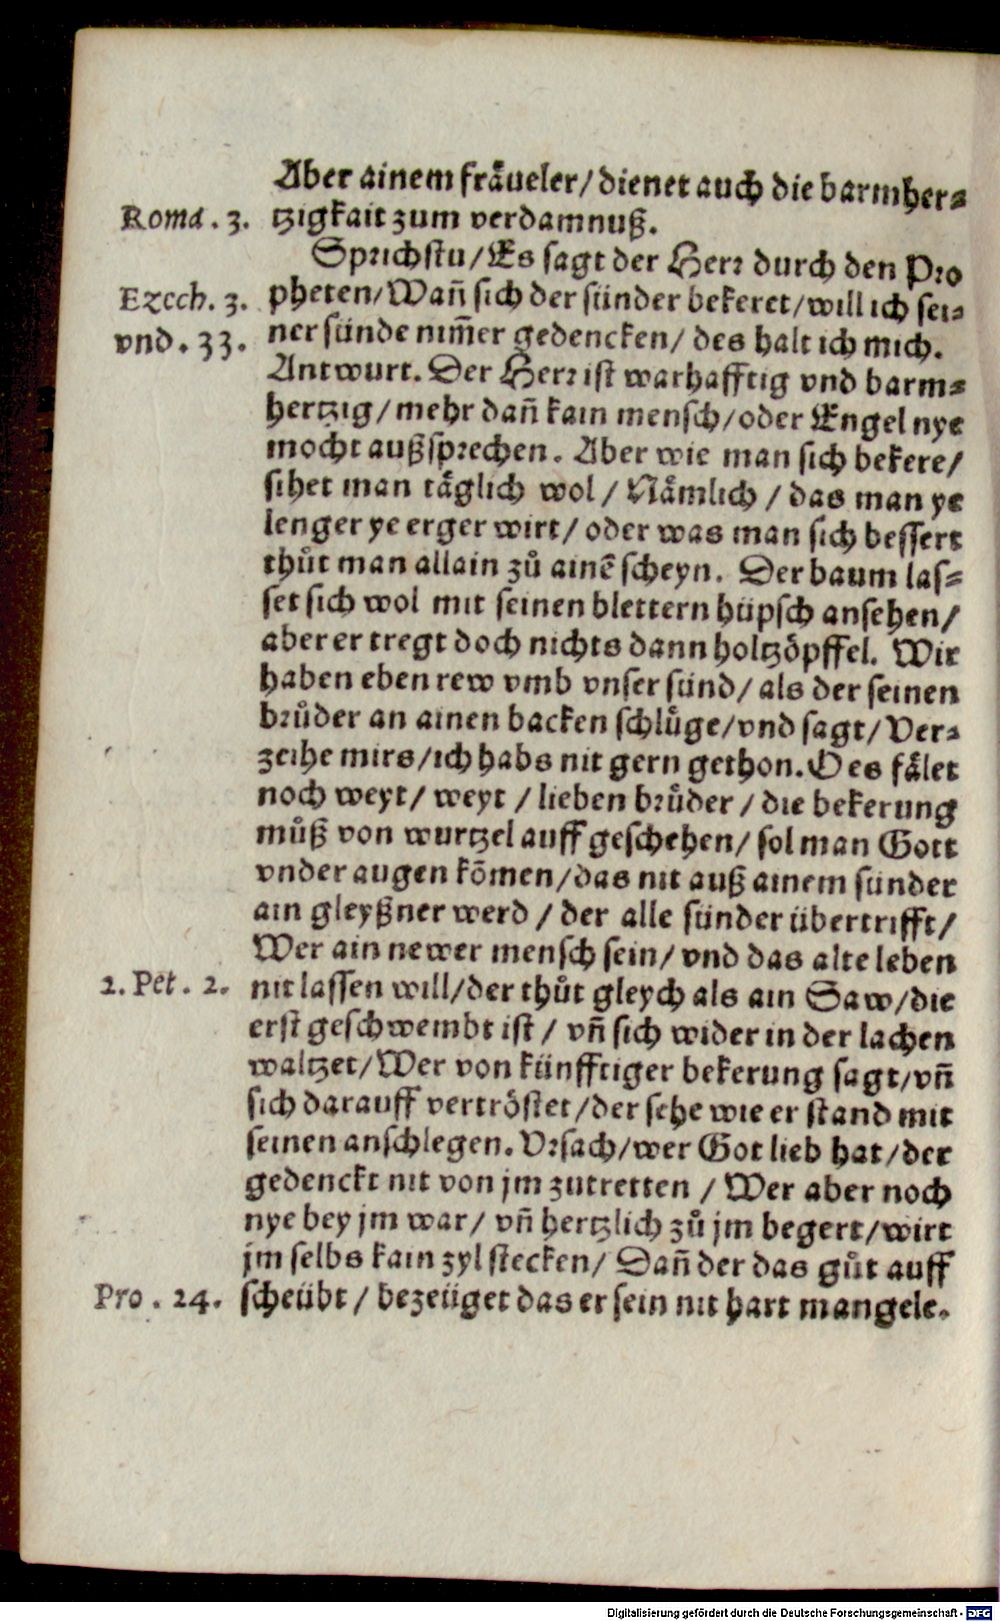 Aber ainem fräueler/dienet auch die barmher⸗
Roma. 3. tzigkait zum verdamnuß.
Sprichstu/Es sagt der Herr durch den Pro
Ezech. 3. pheten/Wañ sich der sünder bekeret/will ich sei⸗
vnd. 33. ner sünde nim̃er gedencken/ des halt ich mich.
Antwurt. Der Herr ist warhafftig vnd barm⸗
hertzig/mehr dañ kain mensch/oder Engel nye
mocht außsprechen. Aber wie man sich bekere/
sihet man täglich wol/Nämlich/das man ye
lenger ye erger wirt/oder was man sich bessert
thůt man allain zů ainē scheyn. Der baum las⸗
set sich wol mit seinen blettern hüpsch ansehen/
aber er tregt doch nichts dann holtzöpffel. Wir
haben eben rew vmb vnser sünd/als der seinen
brůder an ainen backen schlůge/vnd sagt/Ver⸗
zeihe mirs/ich habs nit gern gethon. O es fälet
noch weyt/weyt/lieben brůder/die bekerung
můß von wurtzel auff geschehen/sol man Gott
vnder augen kōmen/das nit auß ainem sünder
ain gleyßner werd/der alle sünder übertrifft/
Wer ain newer mensch sein/vnd das alte leben
2. Pet. 2. nit lassen will/der thůt gleych als ain Saw/die
erst geschwembt ist/vñ sich wider in der lachen
waltzet/Wer von künfftiger bekerung sagt/vñ
sich darauff vertröstet/der sehe wie er stand mit
seinen anschlegen. Vrsach/wer Got lieb hat/der
gedenckt nit von jm zutretten/Wer aber noch
nye bey jm war/vñ hertzlich zů jm begert/wirt
jm selbs kain zyl stecken/Dañ der das gůt auff
Pro. 24. scheübt/bezeüget das er sein nit hart mangele.
Digitalisierung gefördert durch die Deutsche Forschungsgemeinschaft - DFG